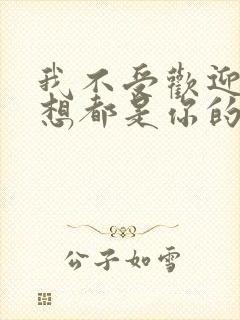 我不受歡迎
想都是你的
公子如雪